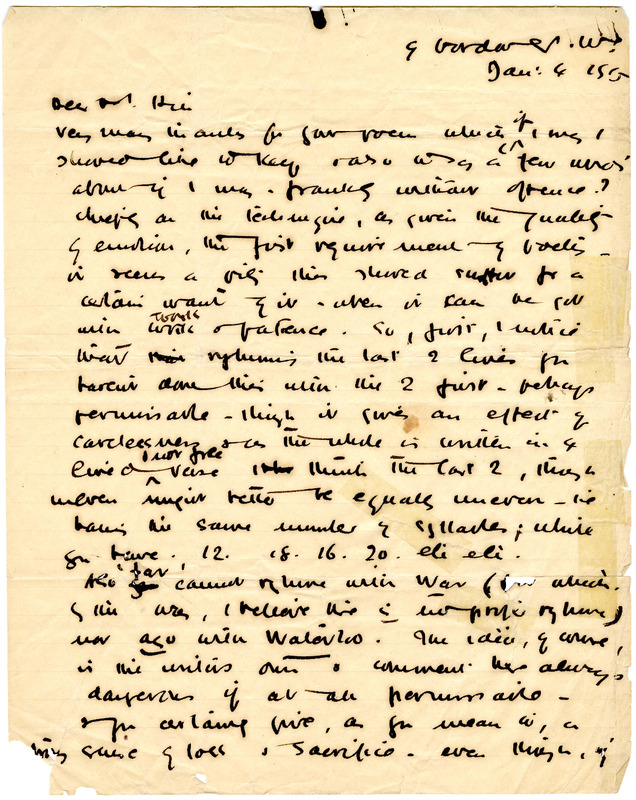 Jan: 4 1915
Dear Mr. Hill
Very many thanks for your poem which if I may I
should like to keep & also to say a few words
about if I may - frankly without offence?
chiefly on the technique, as given the quality
of emotion, the first requirement of poetry -
it seems a pity this should suffer for a
certain want of it - when it can be got
with work & patience. So, first, I notice
that rhyming the last 2 lines you
haven't done this with the 2 first - perhaps
permissable - though it gives an effect of
carelessness & as the whole is written in 4
lined verse I not free think the last 2, though
uneven might better be equally uneven - ie
having the same number of syllables; while
you have. 12. 18. 16. 20.
Also 'far' cannot rhyme with War (
by the way, I believe there is no proper rhyme)
nor ago with Waterloo. The idea, of course,
is the writers own & comment here always
dangerous if at all permissable -
& you certainly give, as you mean to, a
sense of loss & sacrifice - even though,